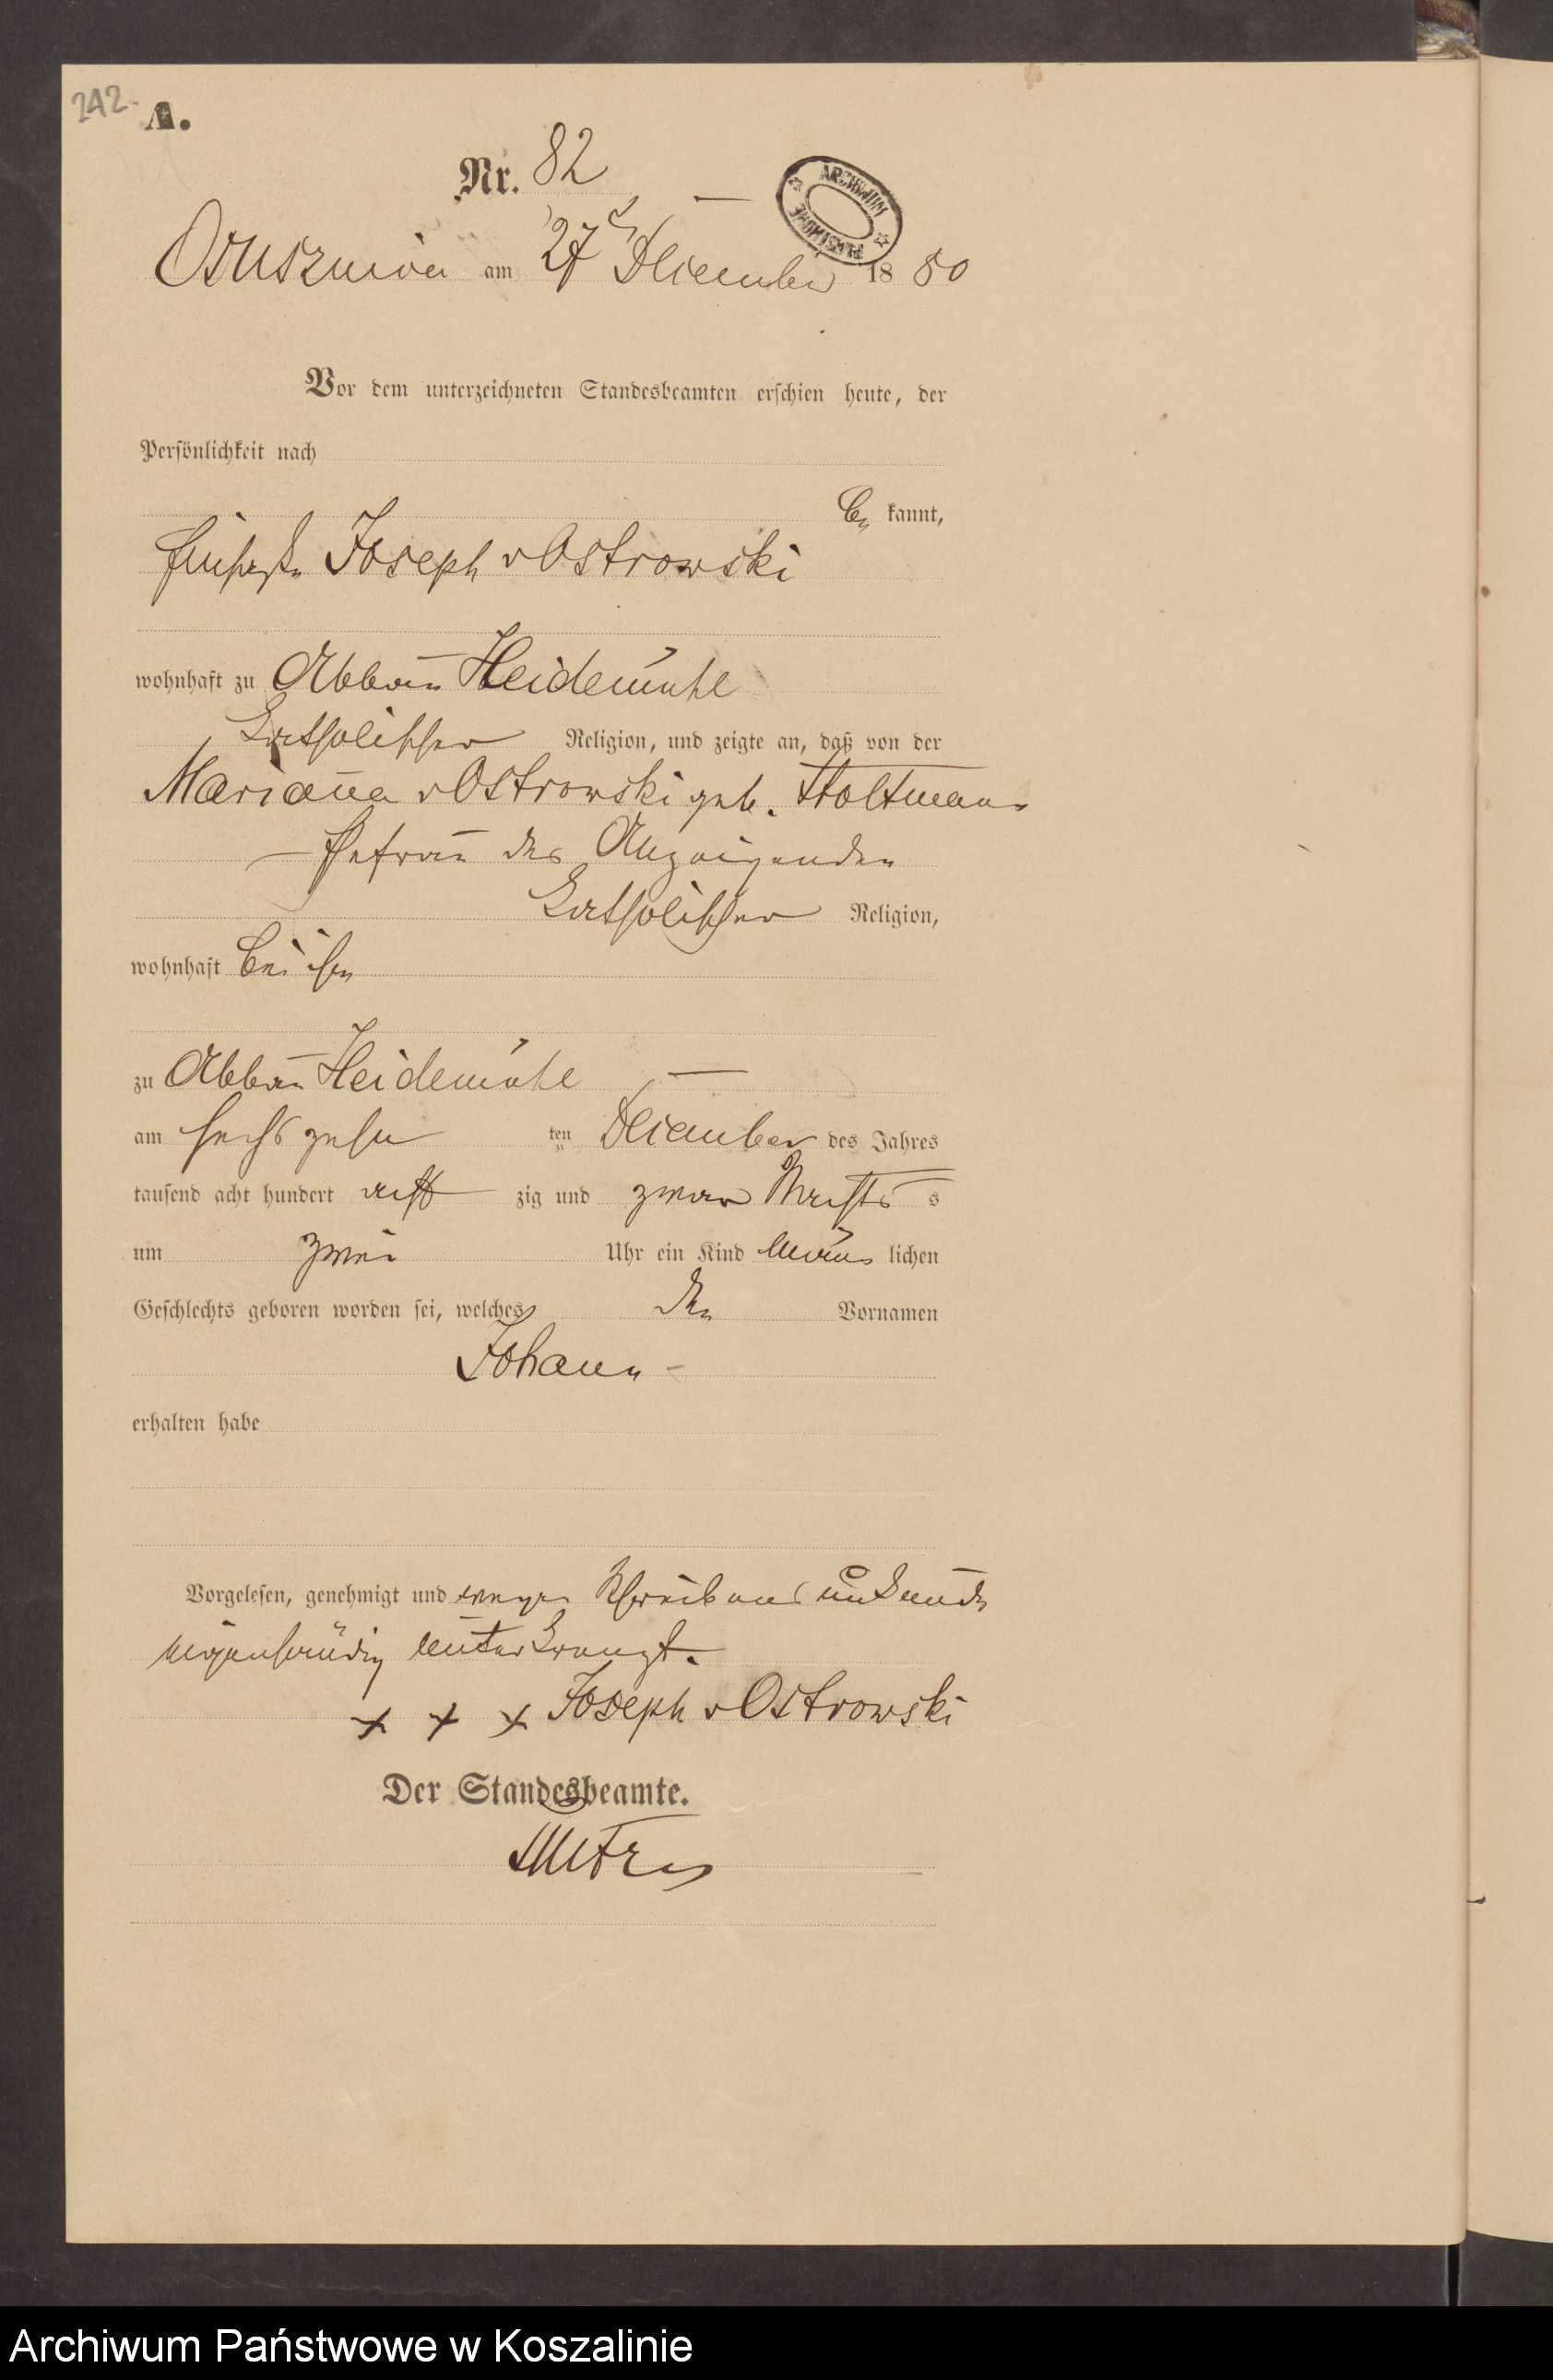 242.
A.
Nr. 82
ARCHIWUM PAŃSTWOWE
Ossusznica am 27 December 1880
Vor dem unterzeichneten Standesbeamten erschien heute, der
Persönlichkeit nach
be kannt,
Joseph v Ostrowski
wohnhaft zu Abbau Heidemühl
katholischer Religion, und zeigte an, daß von der
Marianna v Ostrowski geb. Stoltmann
Ehefrau des Anzeigenden
katholischer Religion,
wohnhaft bei ihm
zu Abbau Heidemühl
am sechszehn ten December des Jahres
tausend acht hundert acht zig und zwar Nachts s
um zwei Uhr ein Kind männ lichen
Geschlechts geboren worden sei, welches den Vornamen
Johann
erhalten habe
Vorgelesen, genehmigt und wegen Schreibens unkunde
eigenhändig unterkreuzt.
x x x Joseph v Ostrowski
Der Standesbeamte.
Archiwum Państwowe w Koszalinie